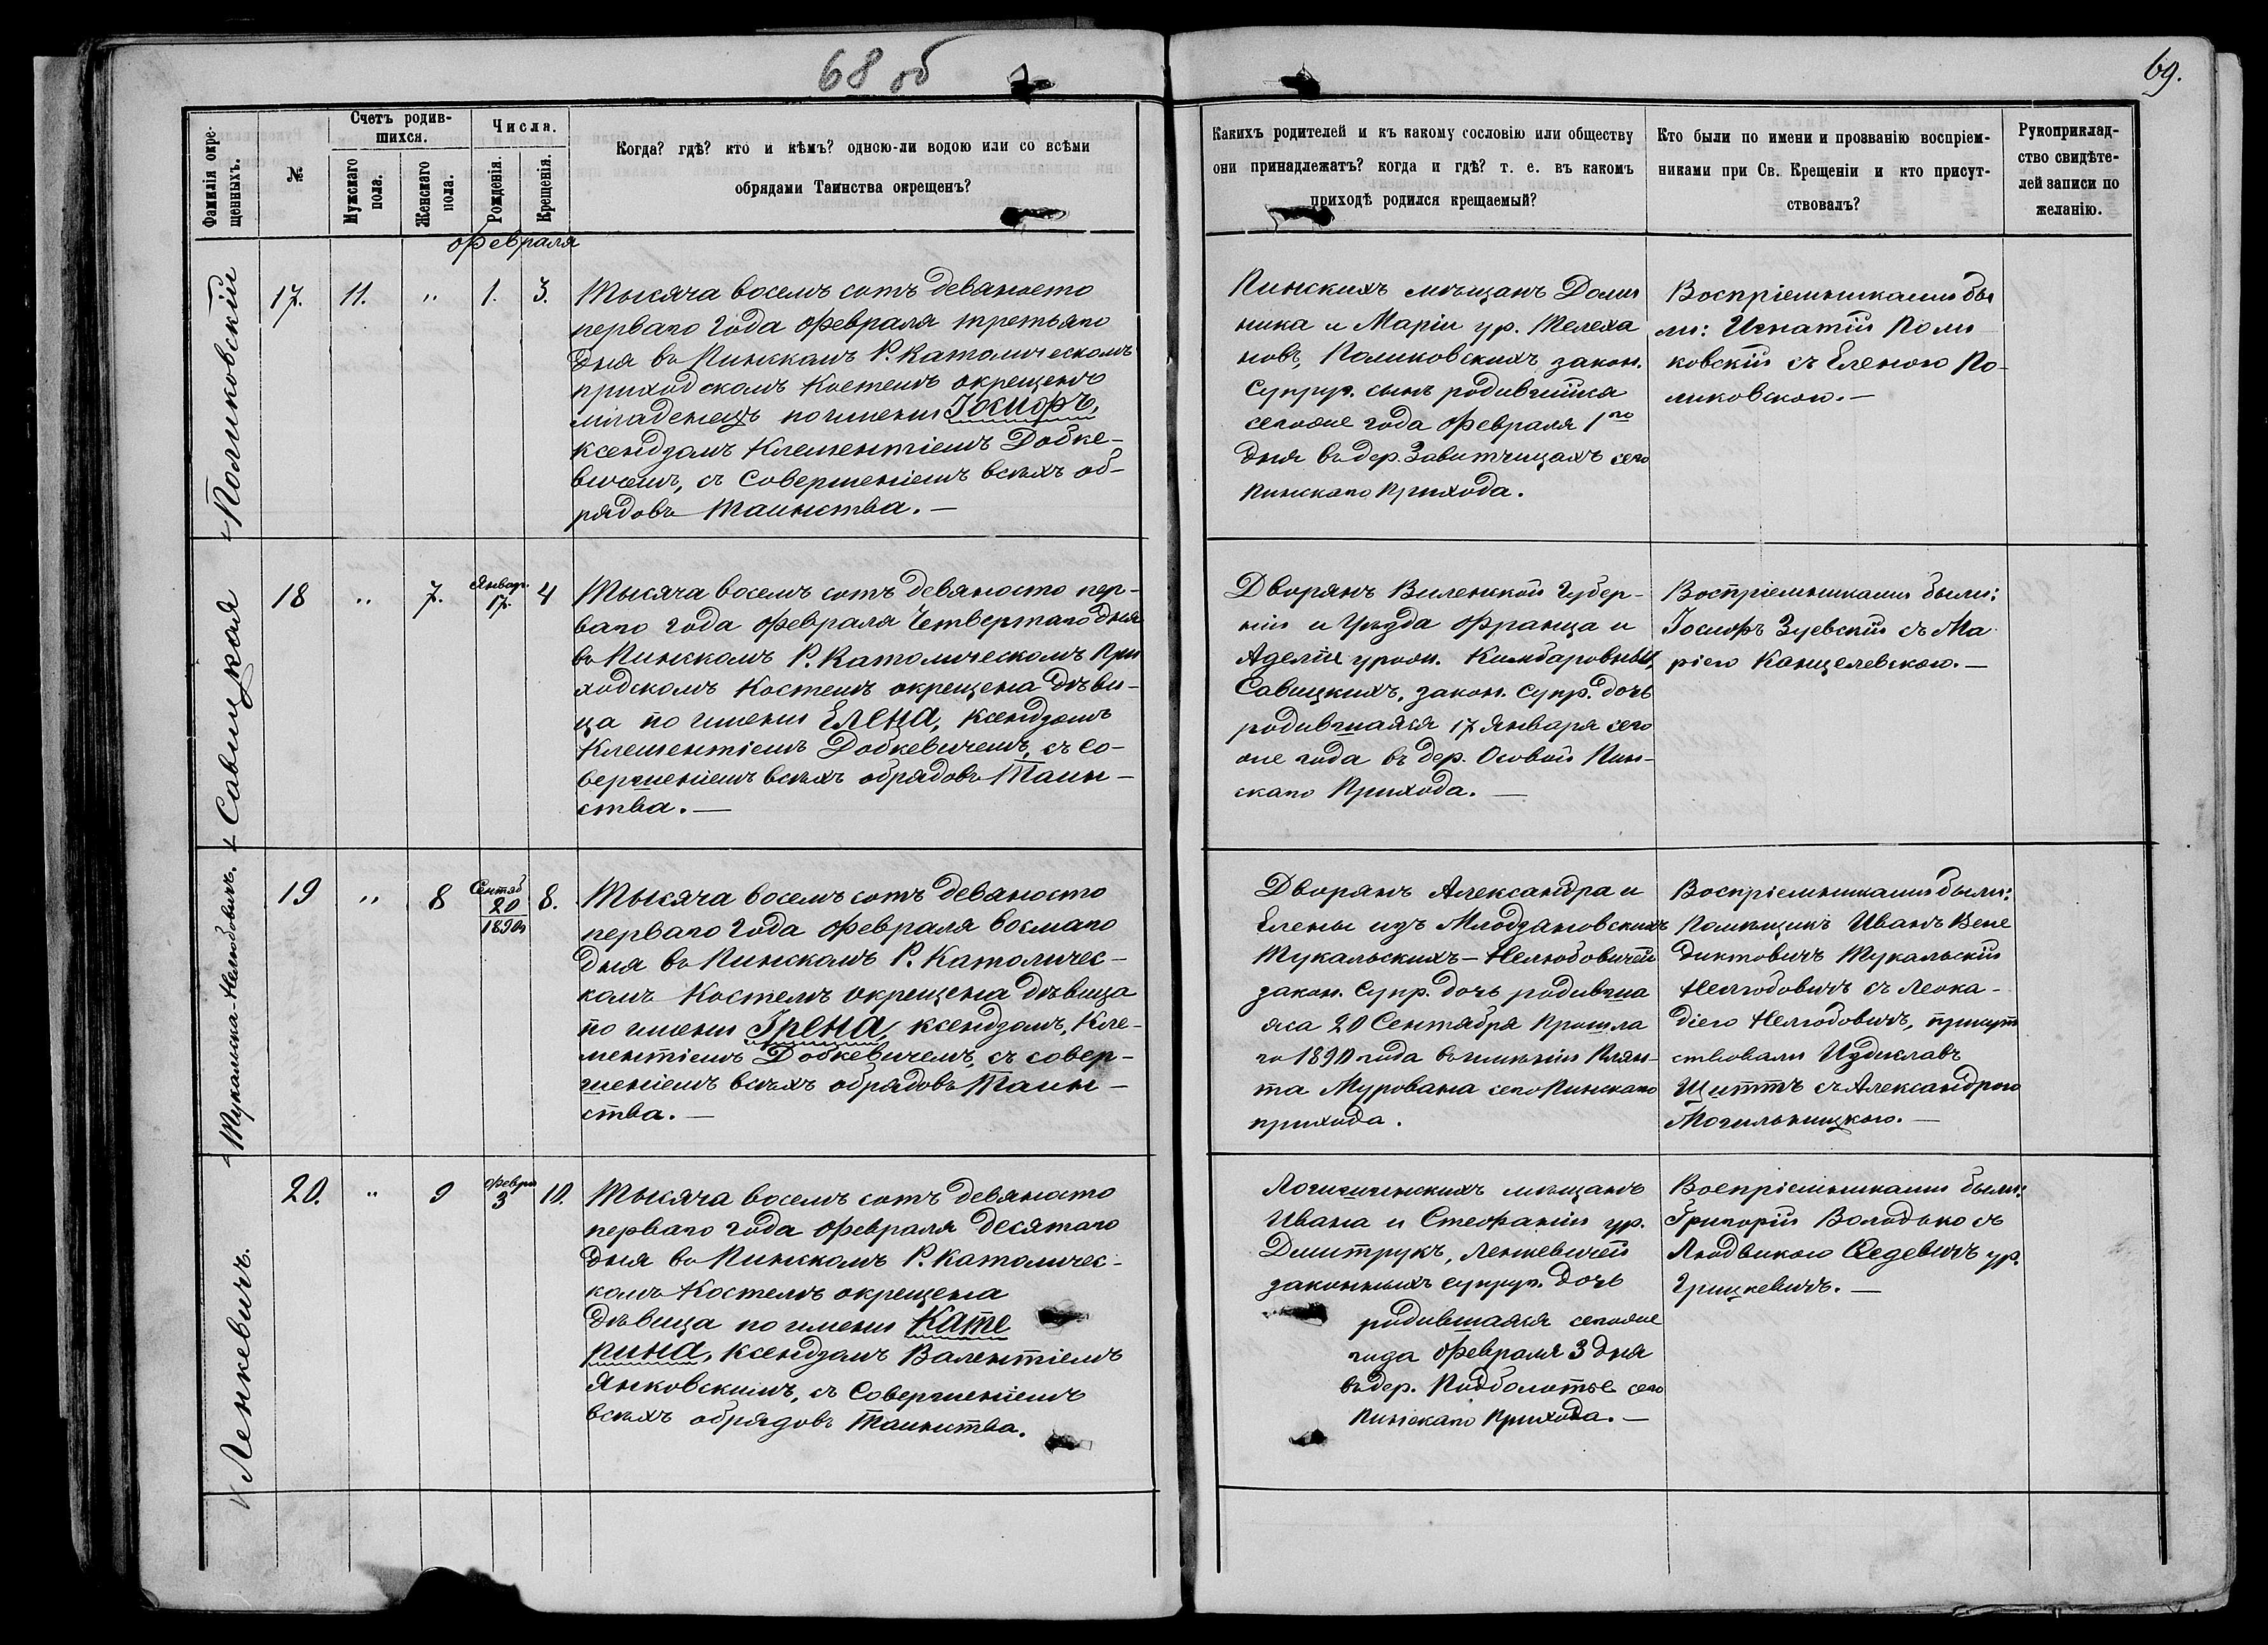 68 об
69.
Фамилія окрещенныхъ.
№
Счетъ родившихся.
Мужскаго пола.
Женскаго пола.
Числа.
Рожденія.
Крещенія.
Когда? гдѣ? кто и кѣмъ? одною-ли водою или со всѣми
обрядами Таинства окрещенъ?
Какихъ родителей и къ какому сословію или обществу
они принадлежатъ? когда и гдѣ? т. е. въ какомъ
приходѣ родился крещаемый?
Кто были по имени и прозванію воспріем-
никами при Св. Крещеніи и кто присут-
ствовалъ?
Рукоприклад-
ство свидѣте-
лей записи по
желанію.
Февраля
Поликовскій
17. 11. „ 1. 3.
Тысяча восемъ сотъ девяносто
перваго года Февраля третьяго
дня въ Пинскомъ Р. Католическомъ
приходскомъ Костелѣ окрещенъ
младенецъ по имени Іосифъ,
ксендзомъ Клементіемъ Добке-
вичемъ, съ Совершеніемъ всѣхъ об-
рядовъ Таинства. —
Пинскихъ мѣщанъ Доми
ника и Маріи ур. Телеха
новъ, Поликовскихъ закон.
Супруг. сынъ родившійся
сегоже года Февраля 1го
дня въ дер. Завитчицахъ сего
Пинскаго Прихода.
Воспріемниками бы
ли: Игнатій Поли
ковскій съ Еленою По-
ликовскою. —
Савицкая
18 „ 7. Январ. 17. 4
Тысяча восемъ сотъ девяносто пер-
ваго года Февраля Четвертаго дня
въ Пинскомъ Р. Католическомъ При
ходскомъ Костелѣ окрещена дѣви-
ца по имени Елена, Ксендзомъ
Клементіемъ Добкевичемъ, съ Со-
вершеніемъ всѣхъ обрядовъ Таин-
ства. —
Дворянъ Виленской Губер-
ніи и Уѣзда Франца и
Аделіи урожд. Кимбаровны,
Савицкихъ, закон. Супр. дочь
родившаяся 17 Января сего
же года въ дер. Особой Пин-
скаго Прихода. —
Воспріемниками были:
Іосифъ Зуевскій съ Ма
ріею Канцелевскою. —
Тукальска-Нелюбовичъ.
19 „ 8 Сентяб 20 1890г 8.
Тысяча восемъ сотъ девяносто
перваго года Февраля восмаго
дня въ Пинскомъ Р. Католичес-
комъ Костелѣ окрещена дѣвица
по имени Ірена, ксендзомъ, Кле-
ментіемъ Добкевичемъ, съ совер-
шеніемъ всѣхъ обрядовъ Таин-
ства. —
Дворянъ Александра и
Елены изъ Млодзяновскихъ
Тукальскихъ-Нелюбовичей
закон. Супр. дочь родивша
яся 20 Сентября Прошла
го 1890 года въ имѣніи Плян-
та Мурована сего Пинскаго
прихода.
Воспріемниками были:
Помѣщикъ Иванъ Вене
диктовичъ Тукальскій
Нелюбовичъ съ Леока-
діею Нелюбовичъ, присут
ствовали Издиславъ
Щиттъ съ Александрою
Могильницкою. —
Ленкевичъ.
20. „ 9 Февра 3 10.
Тысяча восемъ сотъ девяносто
перваго года Февраля десятаго
дня въ Пинскомъ Р. Католичес-
комъ Костелѣ окрещена
дѣвица по имени Кате
рина, Ксендзомъ Валентіемъ
Янковскимъ, съ Совершеніемъ
всѣхъ обрядовъ Таинства.
Логишинскихъ мѣщанъ
Ивана и Стефаніи ур.
Дмитрукъ, Ленкевичей
законныхъ супруг. дочь
родившаяся сегоже
года Февраля 3 дня
въ дер. Подболотье сего
Пинскаго Прихода. —
Воспріемниками были:
Григорій Володько съ
Людвикою Федевичъ ур.
Гришкевичъ. —